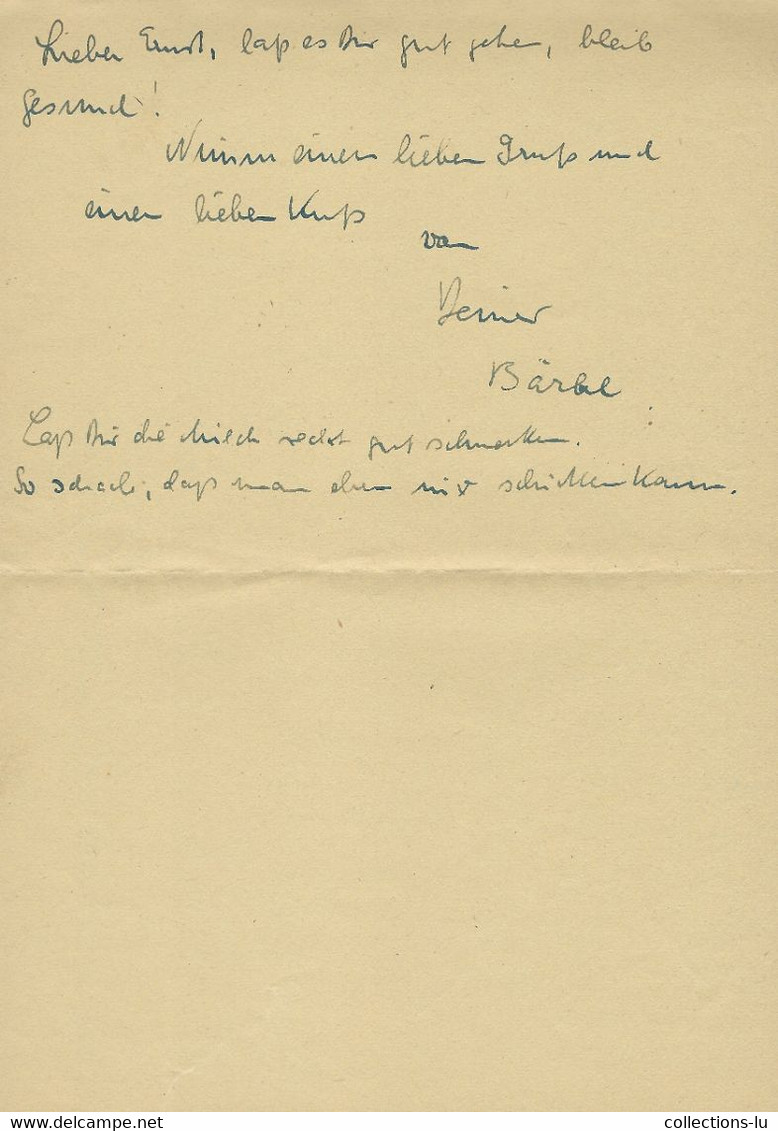 Lieber Ernst, laß es Dir gut gehen, bleib
gesund!
Nimm einen lieben Gruß und
einen lieben Kuß
von
Deiner
Bärbel
Laß Dir die Milch recht gut schmecken.
So schade, daß man eben nix schicken kann.
collections-lu